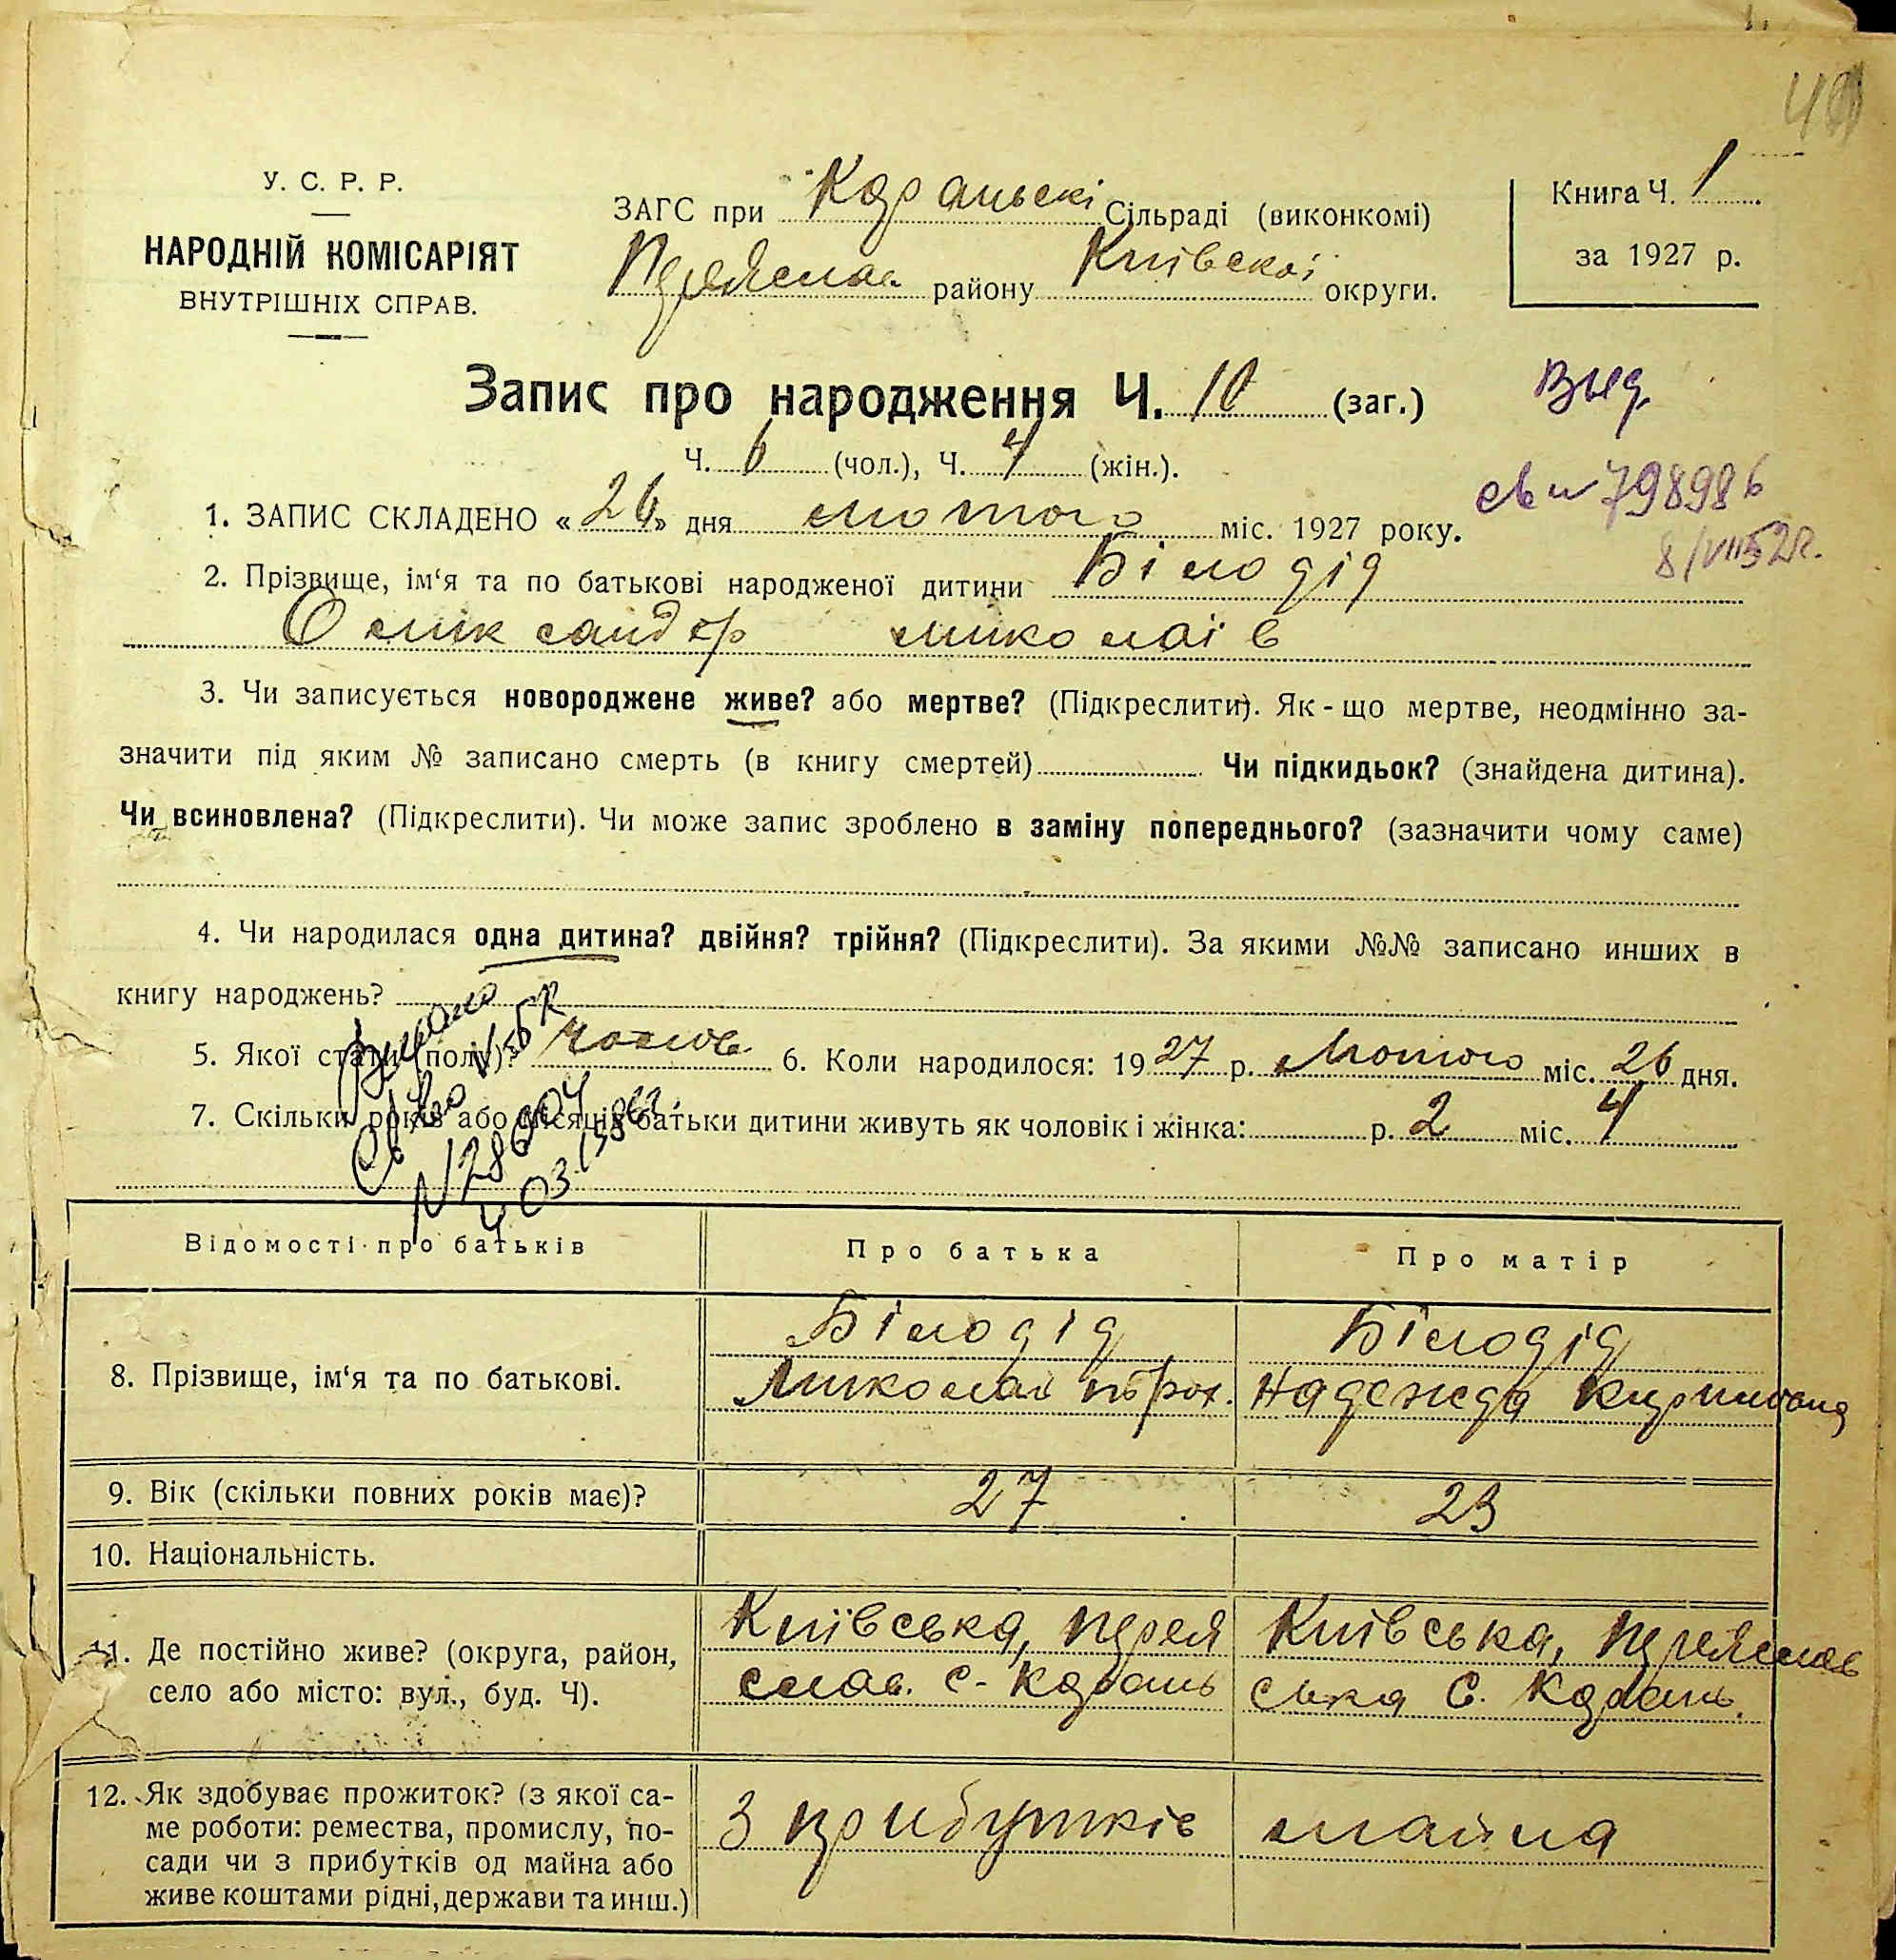 У. С. Р. Р.
НАРОДНІЙ КОМІСАРІЯТ
ВНУТРІШНІХ СПРАВ.
ЗАГС при Караньскі Сільраді (виконкомі)
Переяслав. району Київскої округи.
Книга Ч. 1
за 1927 р.
Запис про народження Ч. 10 (заг.)
Ч. 6 (чол.), Ч. 4 (жін.).
Выд.
св № 798986
8/VII 52 г.
1. ЗАПИС СКЛАДЕНО «26» дня лютого міс. 1927 року.
2. Прізвище, ім‘я та по батькові народженої дитини Білодід
Олександр миколаїв
3. Чи записується новороджене живе? або мертве? (Підкреслити). Як-що мертве, неодмінно за-
значити під яким № записано смерть (в книгу смертей) Чи підкидьок? (знайдена дитина).
Чи всиновлена? (Підкреслити). Чи може запис зроблено в заміну попереднього? (зазначити чому саме)
4. Чи народилася одна дитина? двійня? трійня? (Підкреслити). За якими №№ записано инших в
книгу народжень?
5. Якої стати (полу)? чолов. 6. Коли народилося: 1927 р. Лютого міс. 26 дня.
7. Скільки років або місяців батьки дитини живуть як чоловік і жінка: р. 2 міс. 4
Відомості про батьків
Про батька
Про матір
8. Прізвище, ім‘я та по батькові.
Білодід
Миколай
Білодід
Надежда Кириловна
9. Вік (скільки повних років має)?
27
23
10. Національність.
11. Де постійно живе? (округа, район,
село або місто: вул., буд. Ч).
Київська, перея
слав. с. Карань
Київська, переяслав
ська с. Карань.
12. Як здобуває прожиток? (з якої са-
ме роботи: ремества, промислу, по-
сади чи з прибутків од майна або
живе коштами рідні, держави та инш.)
З прибутків майна